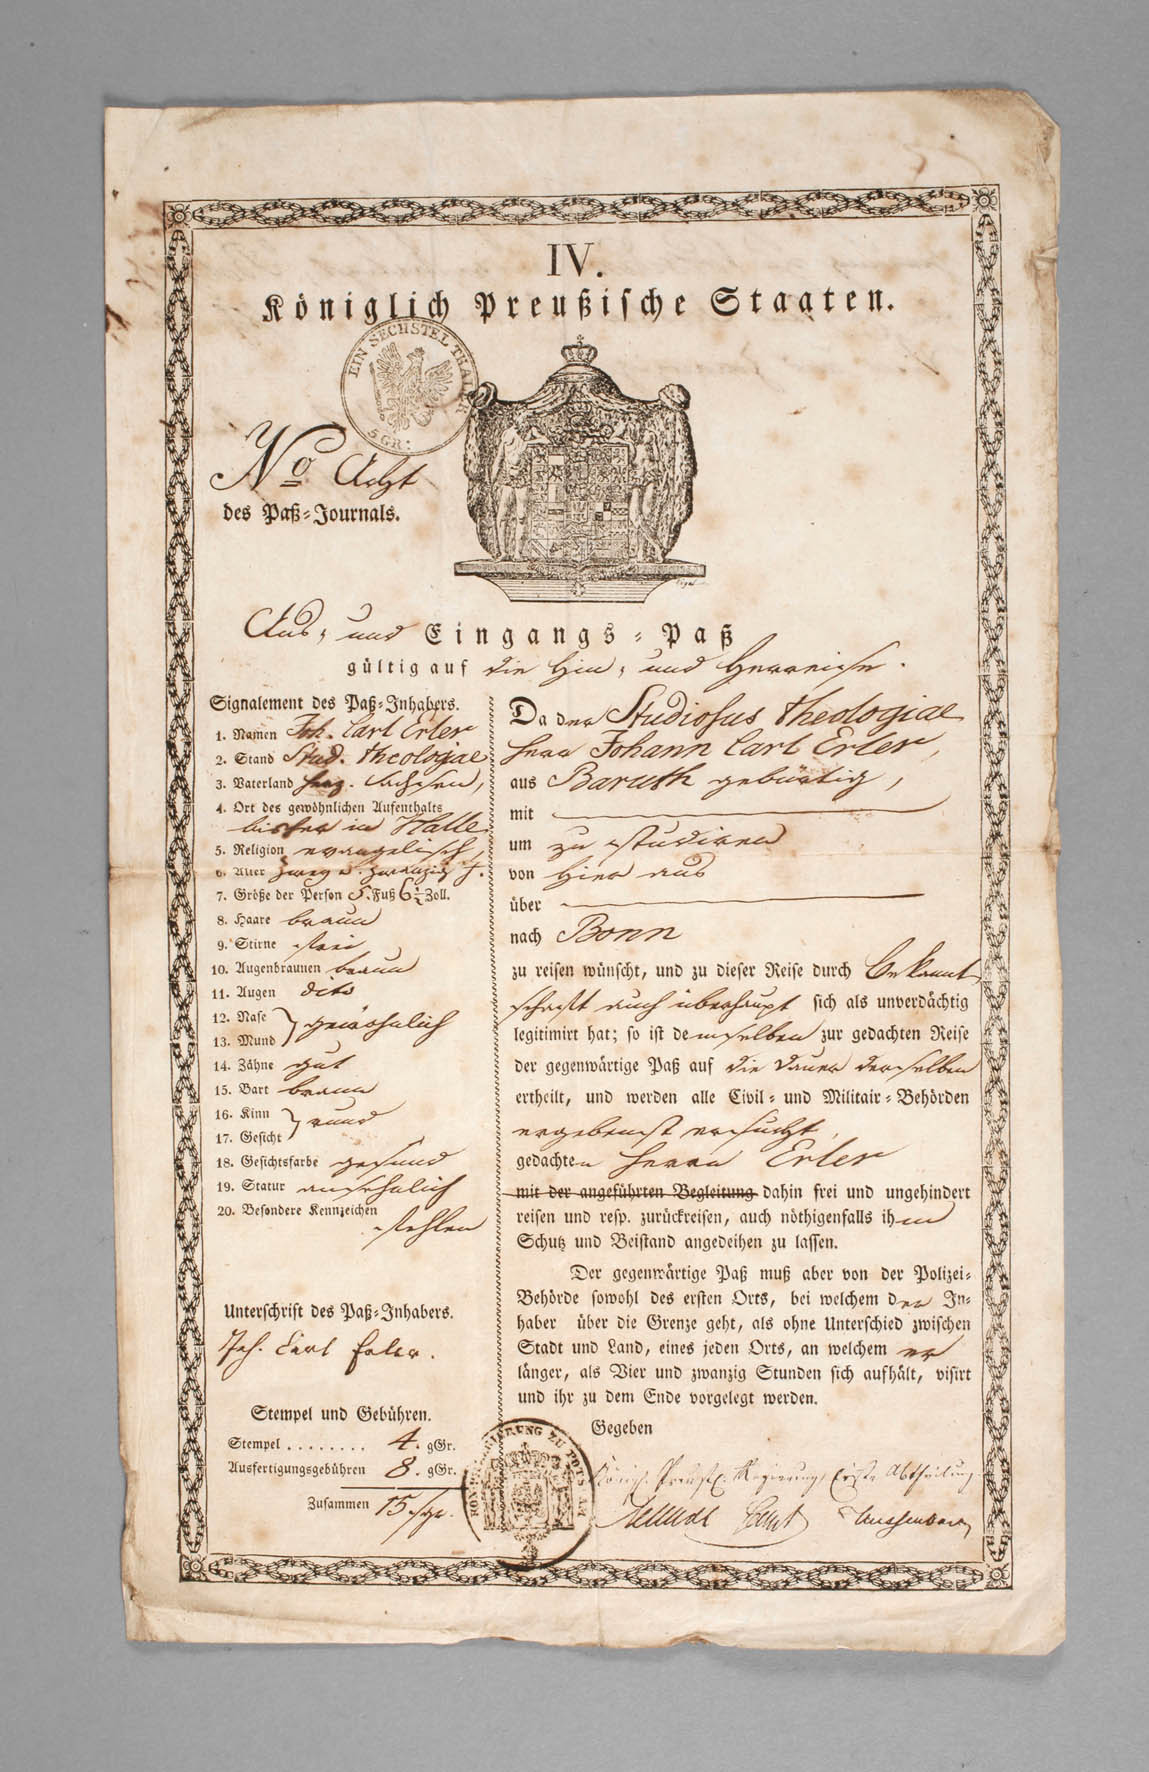 IV.
Königlich Preußische Staaten.
EIN SECHSTEL THALER
5 GR:
No Acht
des Paß-Journals.
Aus- und Eingangs-Paß
gültig auf die Hin- und Herreise.
Signalement des Paß-Inhabers.
1. Namen Joh. Carl Erler
2. Stand Stud. theologiae
3. Vaterland Sachsen,
4. Ort des gewöhnlichen Aufenthalts
bisher in Halle
5. Religion evangelisch
6. Alter zwey u. zwanzig J.
7. Größe der Person 5 Fuß 6½ Zoll.
8. Haare braun
9. Stirne frei
10. Augenbraunen braun
11. Augen dito
12. Nase gewöhnlich
13. Mund
14. Zähne gut
15. Bart braun
16. Kinn rund
17. Gesicht
18. Gesichtsfarbe gesund
19. Statur ansehnlich
20. Besondere Kennzeichen
fehlen
Unterschrift des Paß-Inhabers.
Joh. Carl Erler.
Stempel und Gebühren.
Stempel ........ 4. gGr.
Ausfertigungsgebühren 8. gGr.
Zusammen 15 sgr.
Da der Studiosus theologiae
Herr Johann Carl Erler,
aus Baruth gebürtig,
mit
um zu studiren
von hier aus
über
nach Bonn
zu reisen wünscht, und zu dieser Reise durch Bekannt-
schaft auch überhaupt sich als unverdächtig
legitimirt hat; so ist demselben zur gedachten Reise
der gegenwärtige Paß auf die Dauer derselben
ertheilt, und werden alle Civil- und Militair-Behörden
ergebenst ersucht,
gedachten Herrn Erler
mit der angeführten Begleitung dahin frei und ungehindert
reisen und resp. zurückreisen, auch nöthigenfalls ihm
Schutz und Beistand angedeihen zu lassen.
Der gegenwärtige Paß muß aber von der Polizei-
Behörde sowohl des ersten Orts, bei welchem der In-
haber über die Grenze geht, als ohne Unterschied zwischen
Stadt und Land, eines jeden Orts, an welchem er
länger, als Vier und zwanzig Stunden sich aufhält, visirt
und ihr zu dem Ende vorgelegt werden.
Gegeben
Königl. Preuß. Regierung, Erste Abtheilung
REGIERUNG ZU POTSDAM